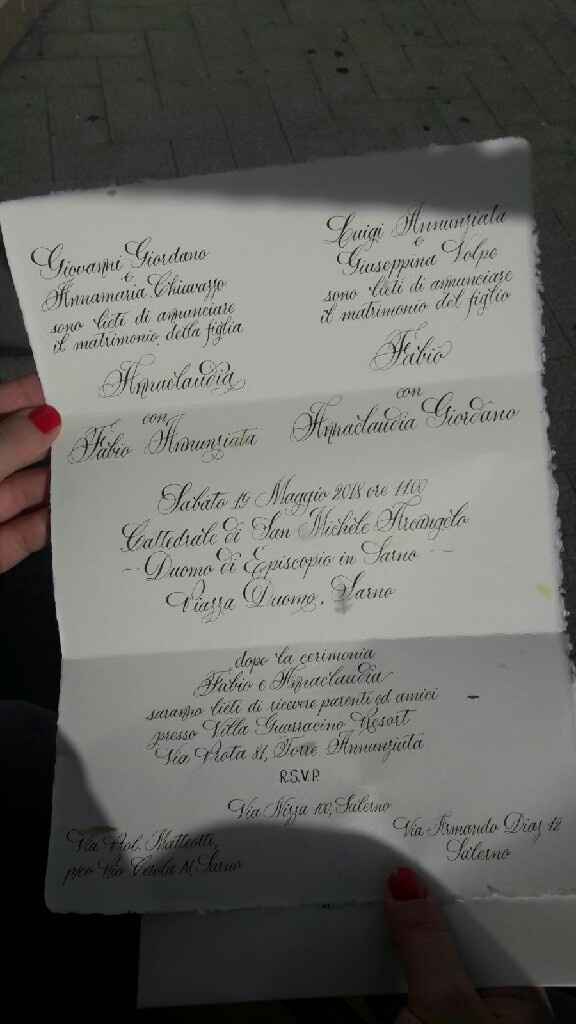 Giovanni Giordano
e
Annamaria Chiavazzo
sono lieti di annunciare
il matrimonio della figlia
Annaclaudia
con
Fabio Annunziata
Luigi Annunziata
e
Giuseppina Volpe
sono lieti di annunciare
il matrimonio del figlio
Fabio
con
Annaclaudia Giordano
Sabato 19 Maggio 2018 ore 11:00
Cattedrale di San Michele Arcangelo
-- Duomo di Episcopio in Sarno --
Piazza Duomo, Sarno
dopo la cerimonia
Fabio e Annaclaudia
saranno lieti di ricevere parenti ed amici
presso Villa Guarracino Resort
Via Prota 81, Torre Annunziata
R.S.V.P.
Via Nizza 100, Salerno
Via Matteotti,
Sarno
Via Armando Diaz 12
Salerno